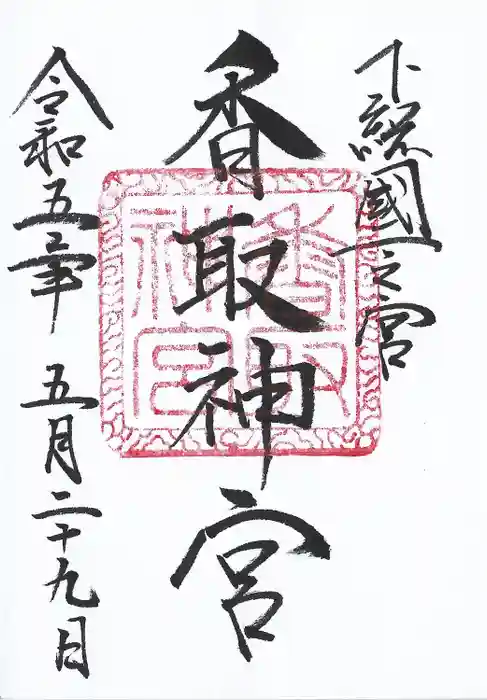 下総國一之宮
香取神宮
香取神宮
令和五年 五月二十九日